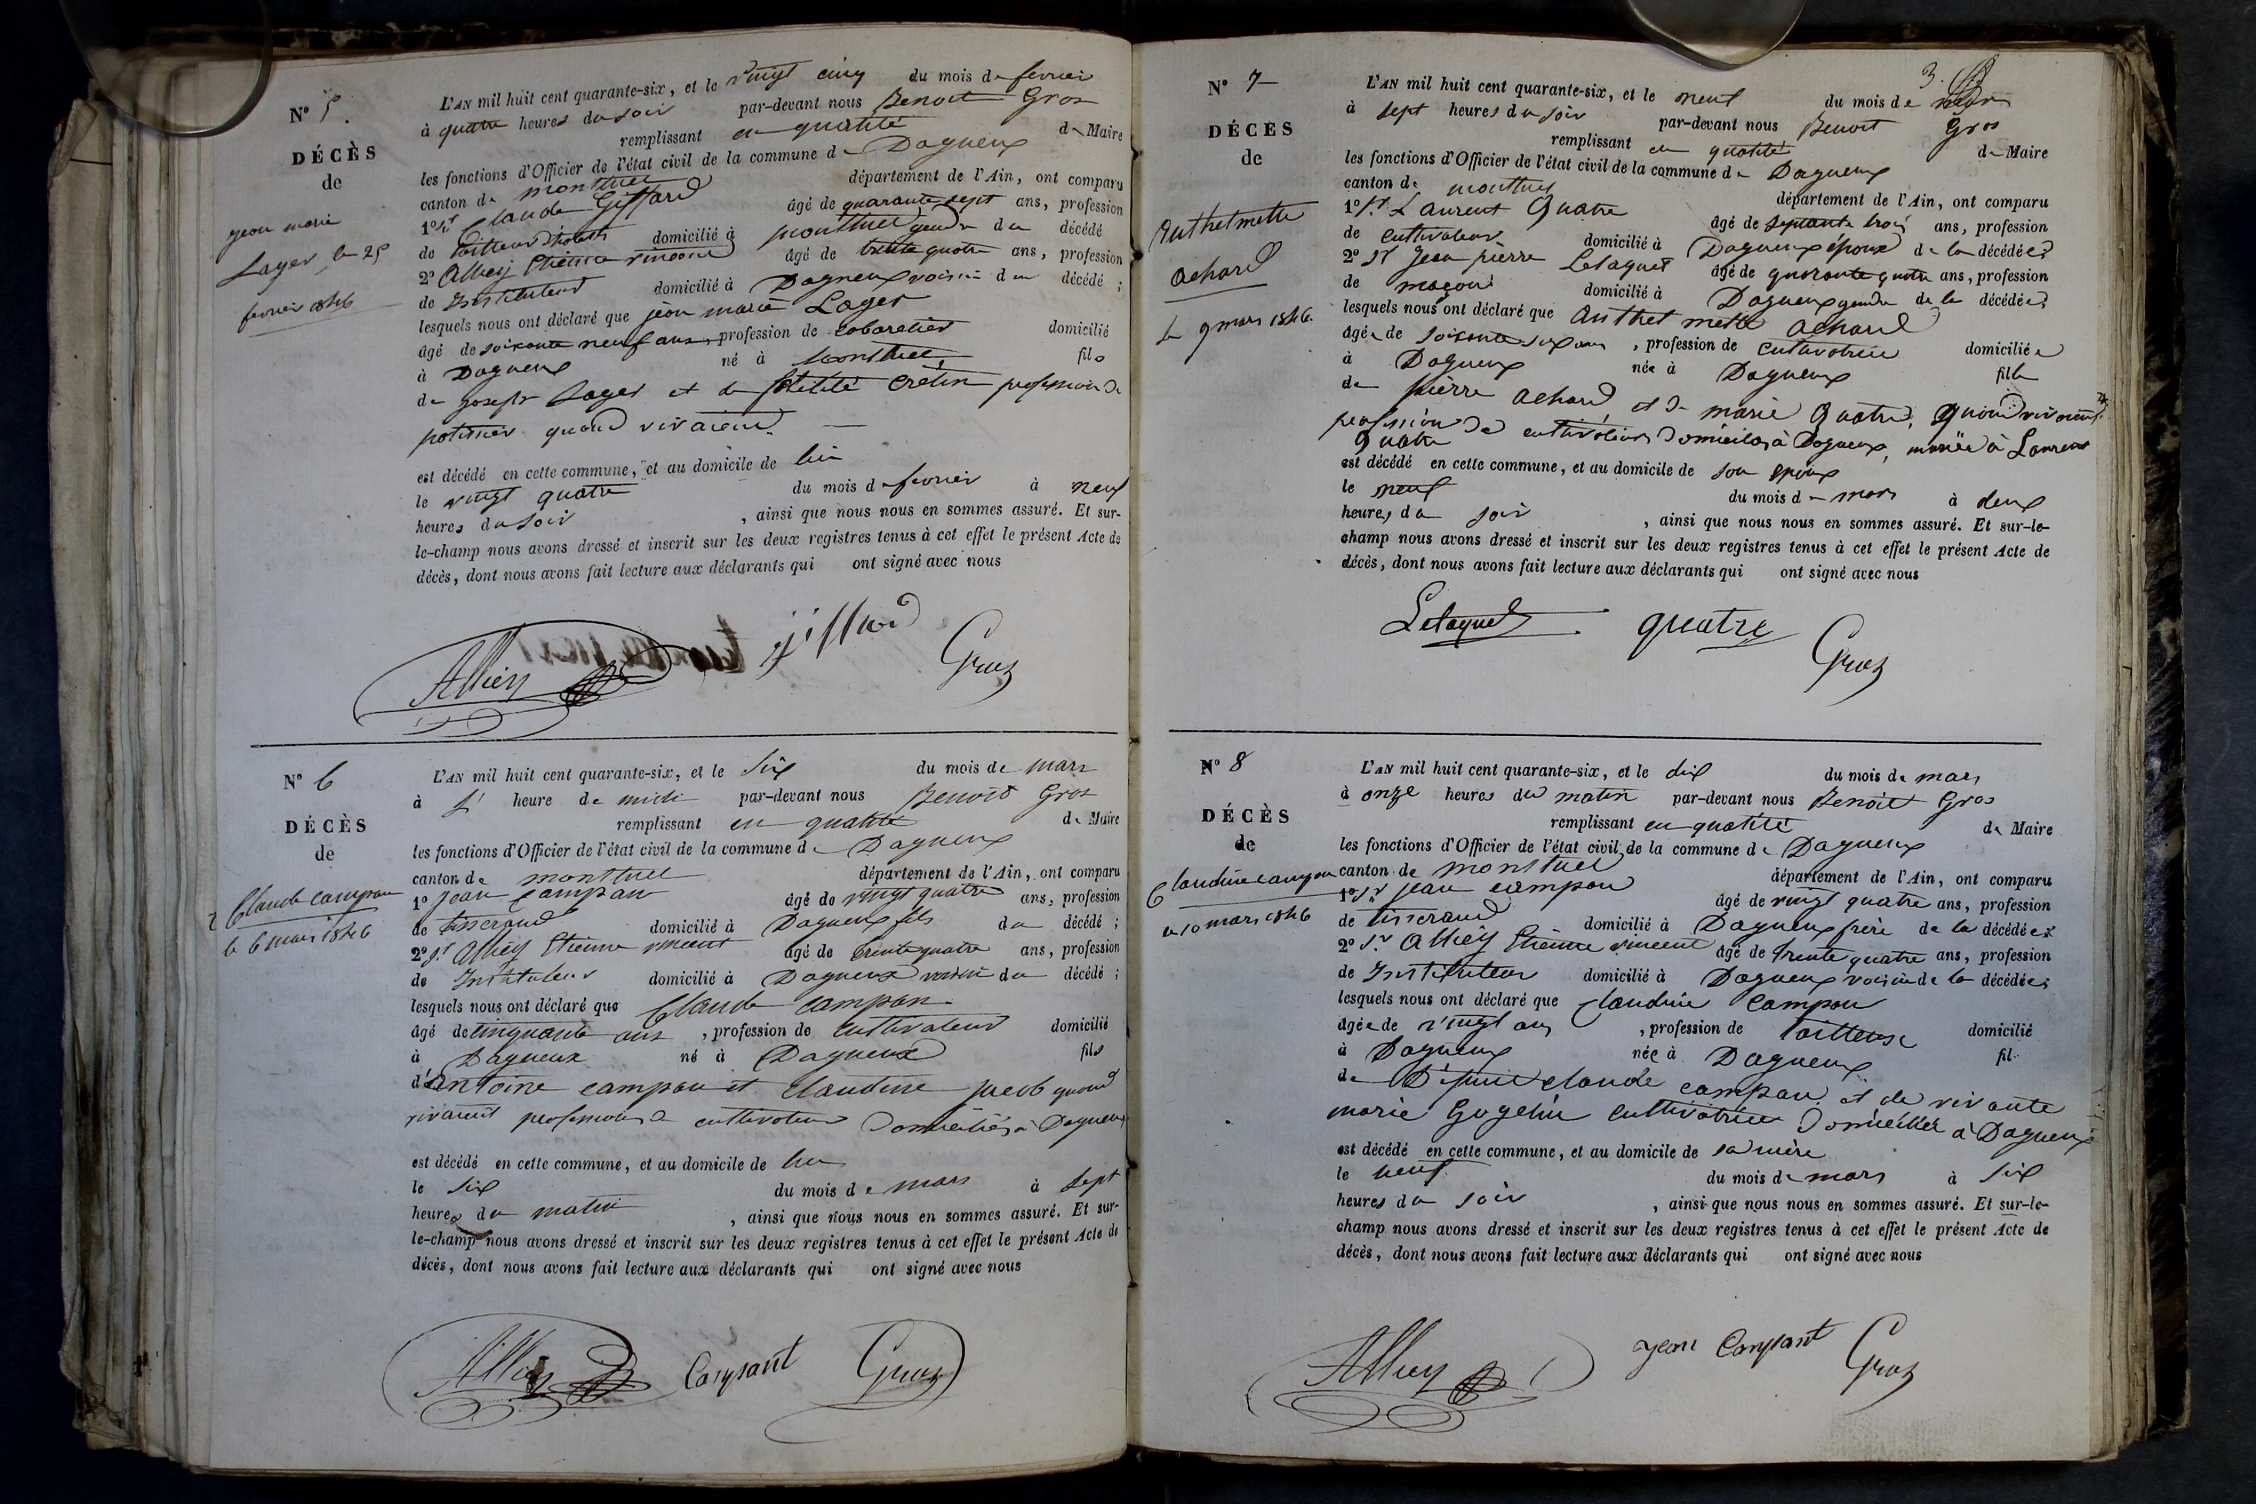 N° 5.
DÉCÈS
de
jean marie
Lager, le 25
fevrier 1846
L'AN mil huit cent quarante-six, et le vingt cinq du mois de fevrier
à quatre heures du soir par-devant nous Benoit Gros
remplissant en qualité de Maire
les fonctions d'Officier de l'état civil de la commune de Dagneux
canton de montluel département de l'Ain, ont comparu
1° Sr Claude Giffard âgé de quarante sept ans, profession
de tailleur d'habits domicilié à montluel gendre du décédé
2° Alliey Etienne vincent âgé de trente quatre ans, profession
de Instituteur domicilié à Dagneux voisin du décédé ;
lesquels nous ont déclaré que jean marie Lager
âgé de soixante neuf ans, profession de cabaretier domicilié
à Dagneux né à Montluel, fils
de joseph Lager et de cretin profession de
potissier quand vivaient.
est décédé en cette commune, et au domicile de lui
le vingt quatre du mois de fevrier à neuf
heures du soir , ainsi que nous nous en sommes assuré. Et sur-
le-champ nous avons dressé et inscrit sur les deux registres tenus à cet effet le présent Acte de
décès, dont nous avons fait lecture aux déclarants qui ont signé avec nous
Alliey giffard Gros
N° 6
DÉCÈS
de
Claude campan
le 6 mars 1846
L'AN mil huit cent quarante-six, et le six du mois de mars
à 1 heure de midi par-devant nous Benoit Gros
remplissant en qualité de Maire
les fonctions d'Officier de l'état civil de la commune de Dagneux
canton de montluel département de l'Ain, ont comparu
1° Jean Campan âgé de vingt quatre ans, profession
de tisserand domicilié à Dagneux fils du décédé ;
2° Sr Alliey Etienne vincent âgé de trente quatre ans, profession
de Instituteur domicilié à Dagneux voisin du décédé ;
lesquels nous ont déclaré que Claude campan
âgé de cinquante ans , profession de cultivateur domicilié
à Dagneux né à Dagneux fils
d'antoine campan et claudine jacob quand
vivaient profession de cultivateurs domiciliés à Dagneux
est décédé en cette commune, et au domicile de lui
le six du mois de mars à sept
heures du matin , ainsi que nous nous en sommes assuré. Et sur-
le-champ nous avons dressé et inscrit sur les deux registres tenus à cet effet le présent Acte de
décès, dont nous avons fait lecture aux déclarants qui ont signé avec nous
Alliey Campant Gros
3.
N° 7
DÉCÈS
de
Anthelmette
achard
Le 9 mars 1846.
L'AN mil huit cent quarante-six, et le neuf du mois de mars
à sept heures du soir par-devant nous Benoit Gros
remplissant en qualité de Maire
les fonctions d'Officier de l'état civil de la commune de Dagneux
canton de montluel département de l'Ain, ont comparu
1° Sr Laurent Quatre âgé de septante trois ans, profession
de cultivateur domicilié à Dagneux époux de la décédée ;
2° Sr Jean pierre Letaquet âgé de quarante quatre ans, profession
de maçon domicilié à Dagneux gendre de la décédée ;
lesquels nous ont déclaré que Anthelmette achard
âgée de soixante six ans , profession de cultivatrice domiciliée
à Dagneux née à Dagneux fille
de pierre achard et de marie Quatre, quand vivaient
profession de cultivateurs domiciliés à Dagneux, mariée à Laurent
Quatre
est décédé en cette commune, et au domicile de son époux
le neuf du mois de mars à deux
heures du soir , ainsi que nous nous en sommes assuré. Et sur-le-
champ nous avons dressé et inscrit sur les deux registres tenus à cet effet le présent Acte de
décès, dont nous avons fait lecture aux déclarants qui ont signé avec nous
Letaquet quatre Gros
N° 8
DÉCÈS
de
Claudine campan
le 10 mars 1846
L'AN mil huit cent quarante-six, et le dix du mois de mars
à onze heures du matin par-devant nous Benoit Gros
remplissant en qualité de Maire
les fonctions d'Officier de l'état civil de la commune de Dagneux
canton de montluel département de l'Ain, ont comparu
1° Sr jean campan âgé de vingt quatre ans, profession
de tisserand domicilié à Dagneux frère de la décédée
2° Sr Alliey Etienne vincent âgé de trente quatre ans, profession
de Instituteur domicilié à Dagneux voisin de la décédée ;
lesquels nous ont déclaré que claudine campan
âgée de vingt ans , profession de tailleuse domicilié
à Dagneux née à Dagneux fil
de Défunt claude campan et de vivante
marie Gogelin cultivatrice domiciliée à Dagneux
est décédé en cette commune, et au domicile de sa mère
le neuf du mois de mars à six
heures du soir , ainsi que nous nous en sommes assuré. Et sur-le-
champ nous avons dressé et inscrit sur les deux registres tenus à cet effet le présent Acte de
décès, dont nous avons fait lecture aux déclarants qui ont signé avec nous
Alliey jean Campant Gros